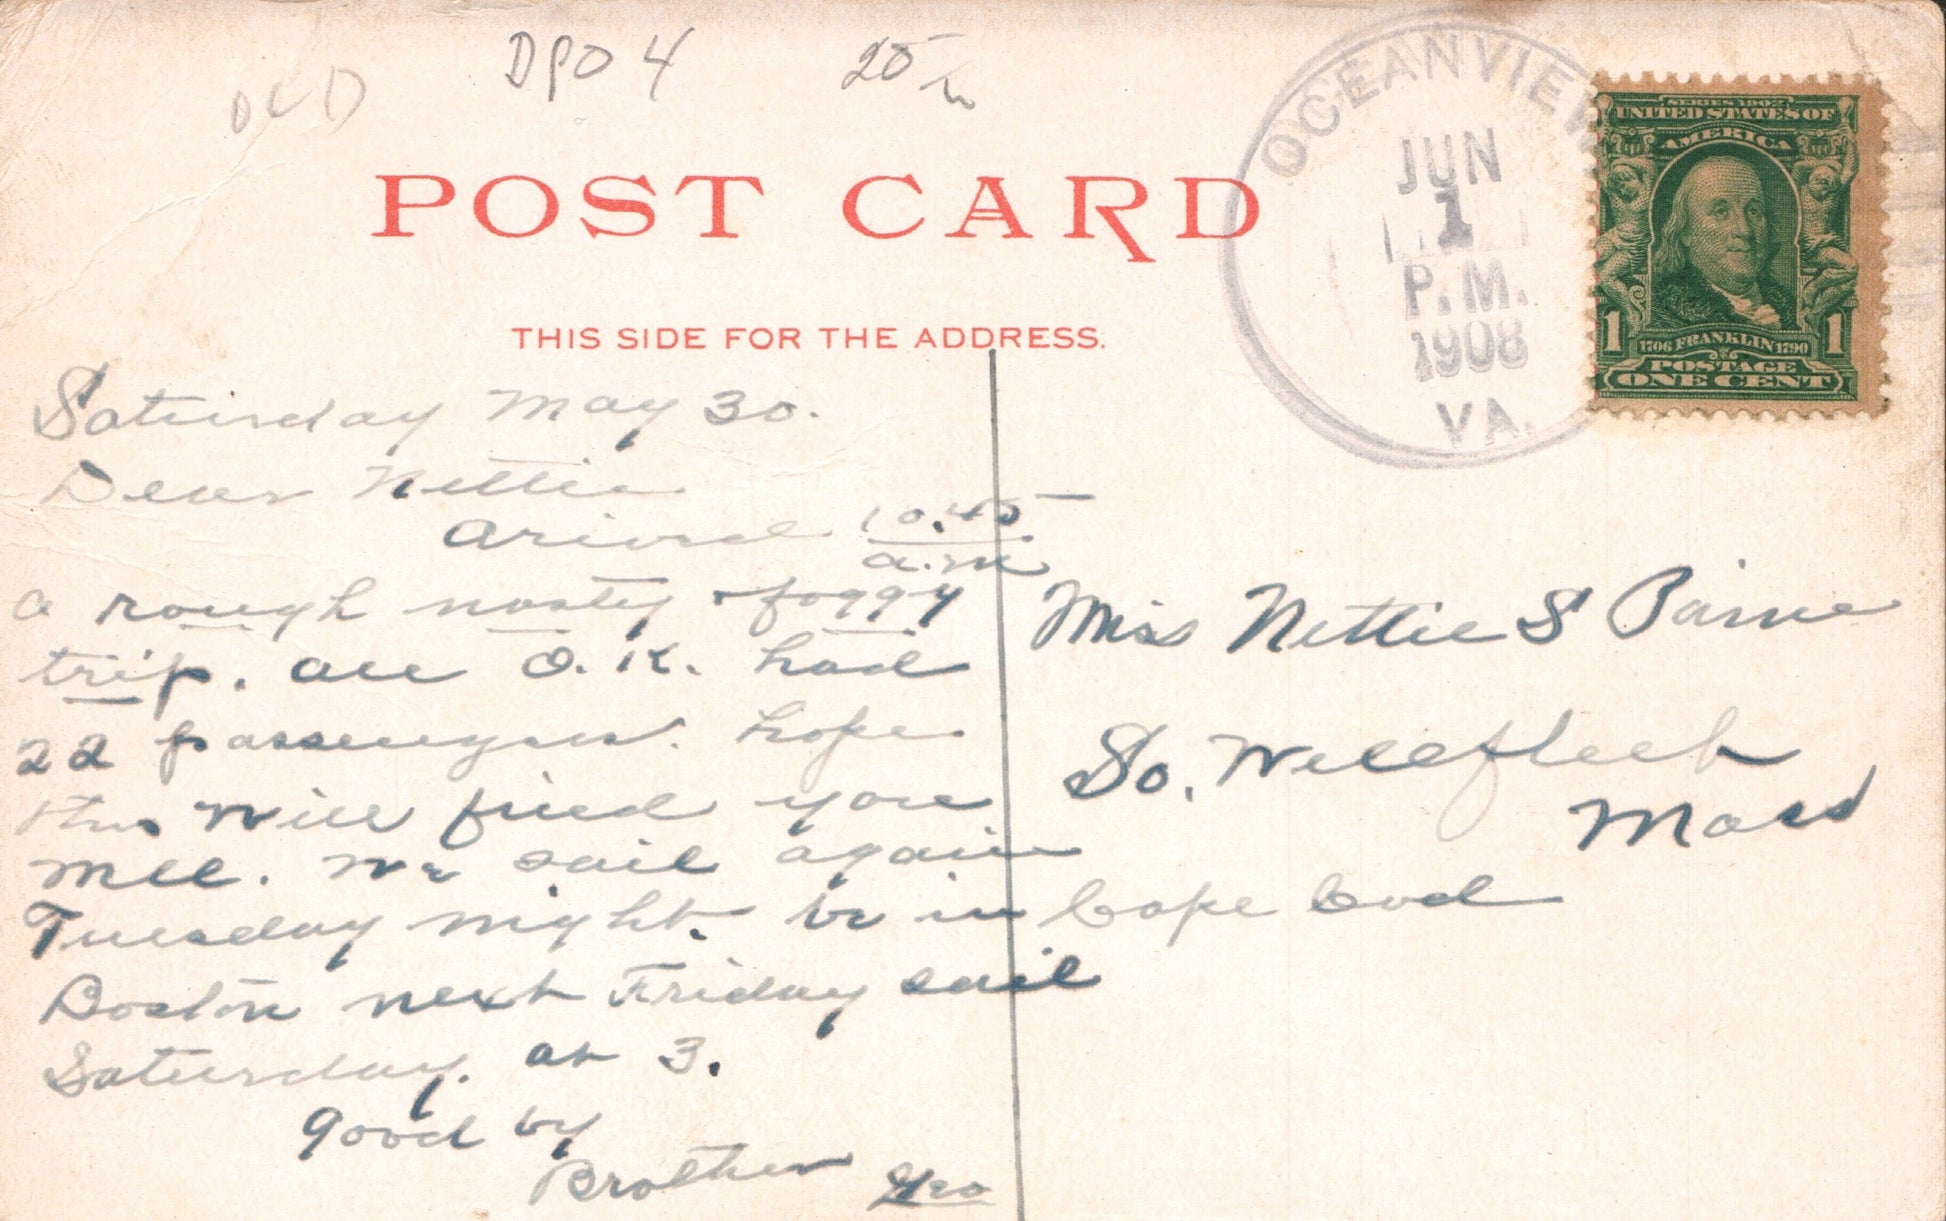 DPO 4
OCEANVIEW
JUN
1
P.M.
1908
VA.
SERIES 1902
UNITED STATES OF
AMERICA
1 1706 FRANKLIN 1790 1
POSTAGE
ONE CENT
POST CARD
THIS SIDE FOR THE ADDRESS.
Saturday May 30.
Dear Nettie
Arived 10.45
a.m
a rough nasty + foggy
trip. all O.K. had
22 passengers. hope
this will find you
well. We sail again
Tuesday night. be in
Boston next Friday sail
Saturday. at 3.
Good by
Brother Geo
Miss Nettie S Paine
So. Wellfleet
Mass
Cape Cod